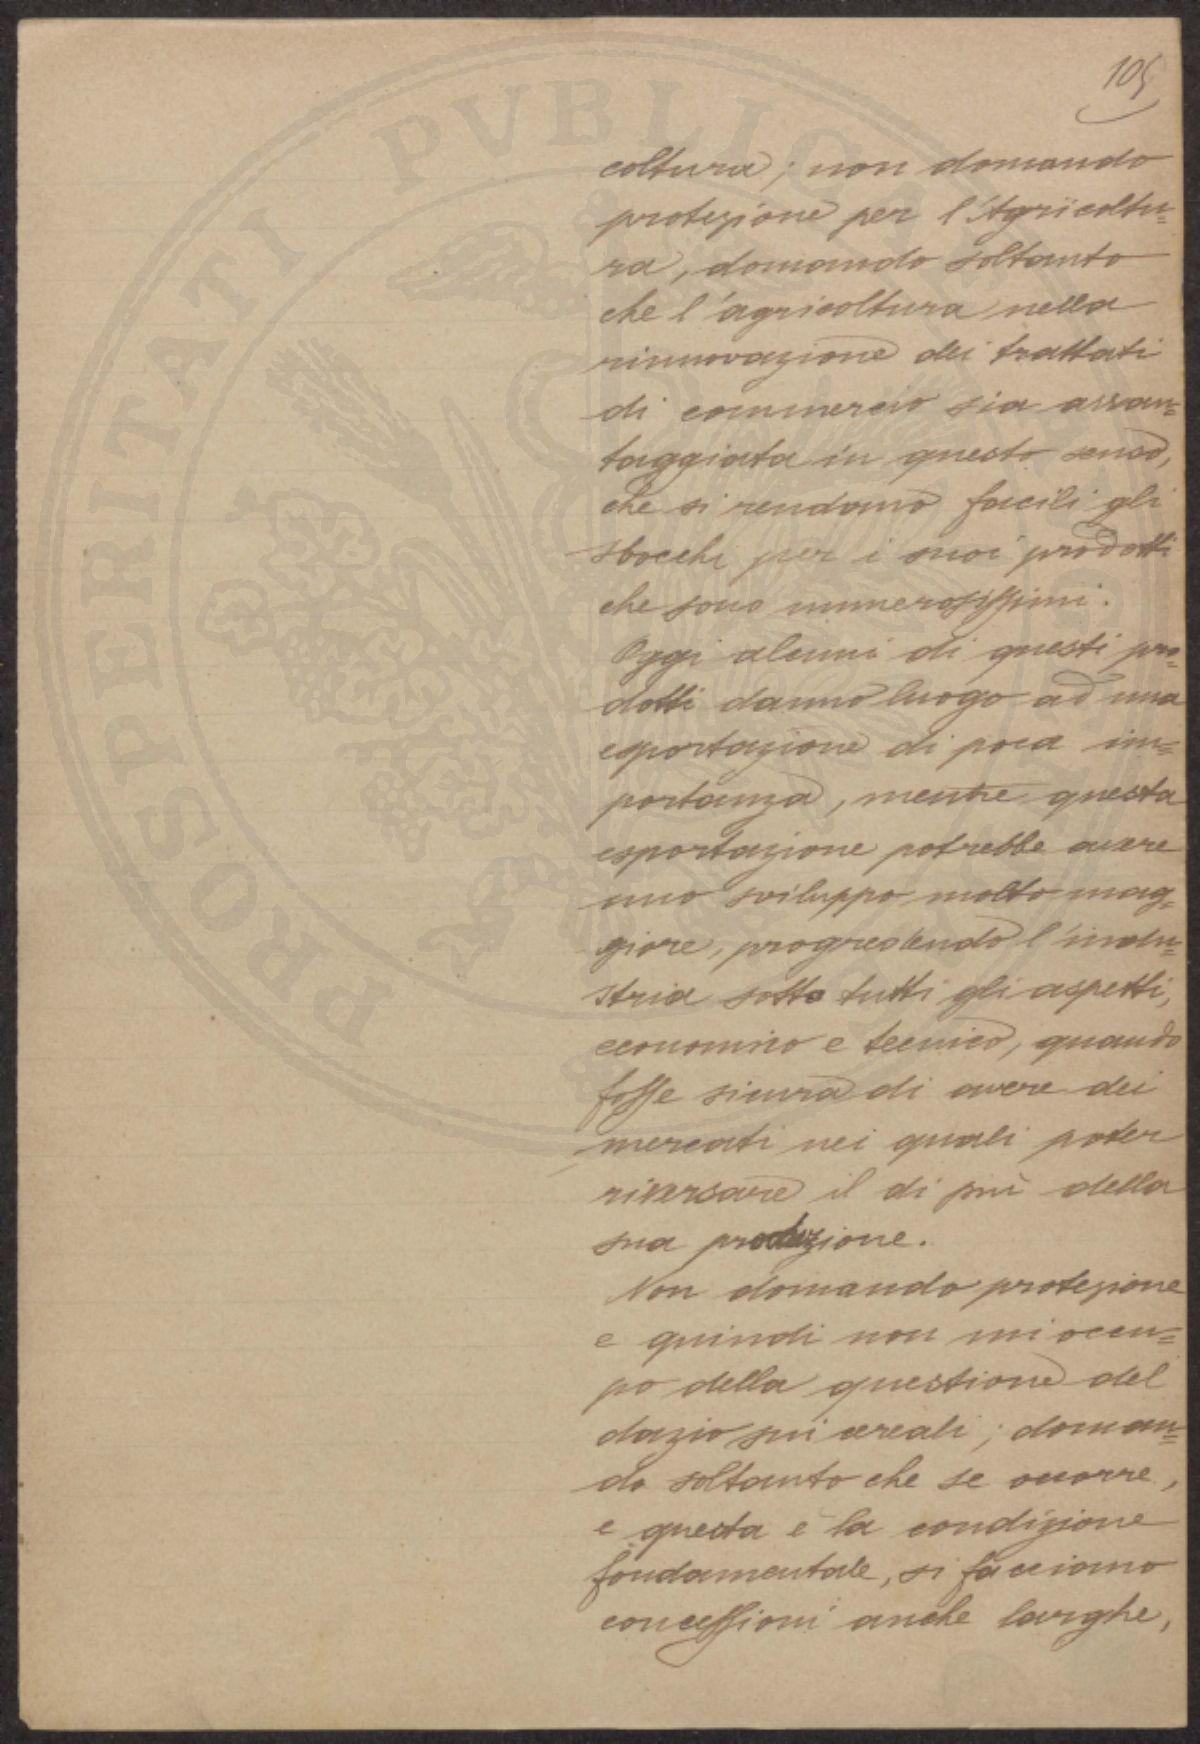 105
coltura; non domando
protezione per l'Agricoltu=
ra, domando soltanto
che l'agricoltura nella
rinnovazione dei trattati
di commercio sia avvan=
taggiata in questo senso,
che si rendano facili gli
sbocchi per i suoi prodotti
che sono numerosissimi.
Oggi alcuni di questi pro=
dotti danno luogo ad una
esportazione di poca im=
portanza, mentre questa
esportazione potrebbe avere
uno sviluppo molto mag=
giore, progredendo l'indu=
stria sotto tutti gli aspetti,
economico e tecnico, quando
fosse sicura di avere dei
mercati nei quali poter
riversare il di più della
sua produzione.
Non domando protezione
e quindi non mi occu=
po della questione del
dazio sui cereali; doman=
do soltanto che se occorre,
e questa è la condizione
fondamentale, si facciamo
concessioni anche larghe,
PROSPERITATI PVBLICAE